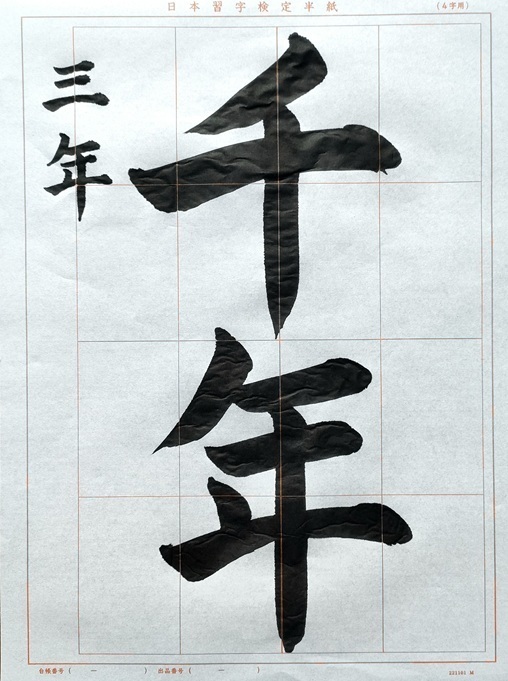 日本習字検定半紙
(4字用)
千年
三年
台帳番号( ー )
出品番号( ー )